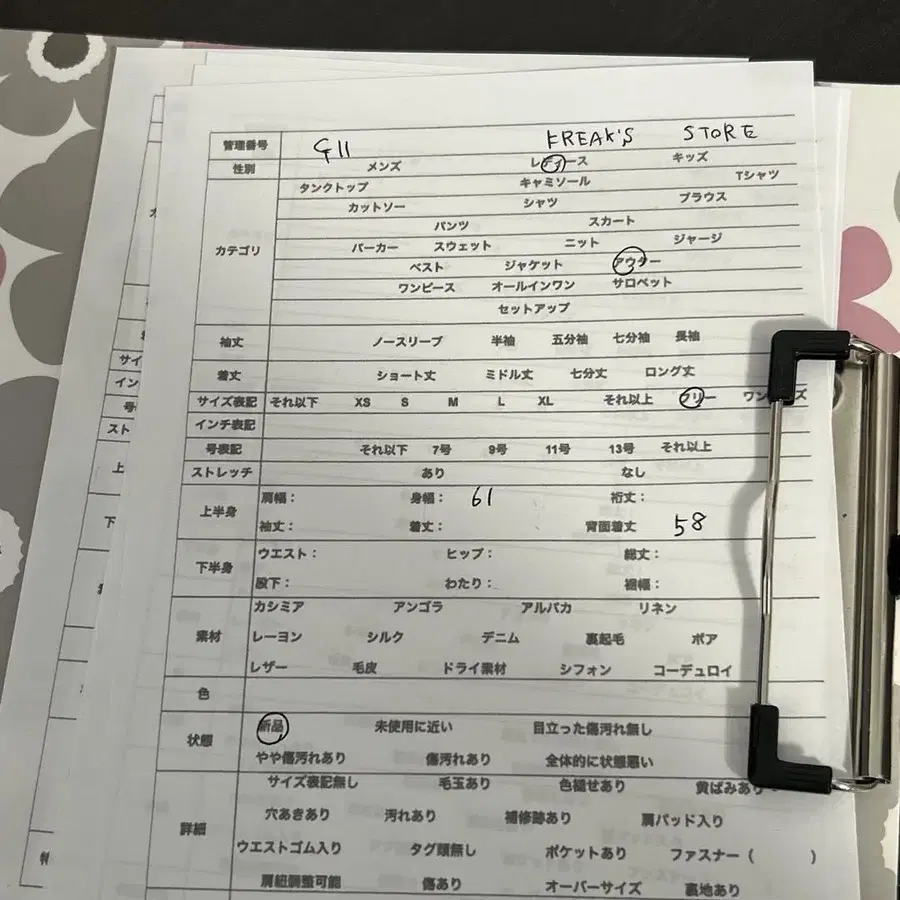 管理番号 G11 FREAK'S STORE
性別 メンズ レディース キッズ
カテゴリ
タンクトップ キャミソール Tシャツ
カットソー シャツ ブラウス
パンツ スカート
パーカー スウェット ニット ジャージ
ベスト ジャケット アウター
ワンピース オールインワン サロペット
セットアップ
袖丈 ノースリーブ 半袖 五分袖 七分袖 長袖
着丈 ショート丈 ミドル丈 七分丈 ロング丈
サイズ表記 それ以下 XS S M L XL それ以上 フリー
インチ表記
号表記 それ以下 7号 9号 11号 13号 それ以上
ストレッチ あり なし
上半身
肩幅: 身幅: 61 裄丈:
袖丈: 着丈: 背面着丈 58
下半身
ウエスト: ヒップ: 総丈:
股下: わたり: 裾幅:
素材
カシミア アンゴラ アルパカ リネン
レーヨン シルク デニム 裏起毛 ボア
レザー 毛皮 ドライ素材 シフォン コーデュロイ
色
状態
新品 未使用に近い 目立った傷汚れ無し
やや傷汚れあり 傷汚れあり 全体的に状態悪い
詳細
サイズ表記無し 毛玉あり 色褪せあり 黄ばみあり
穴あきあり 汚れあり 補修跡あり 肩パッド入り
ウエストゴム入り タグ類無し ポケットあり ファスナー( )
肩紐調整可能 傷あり オーバーサイズ 裏地あり